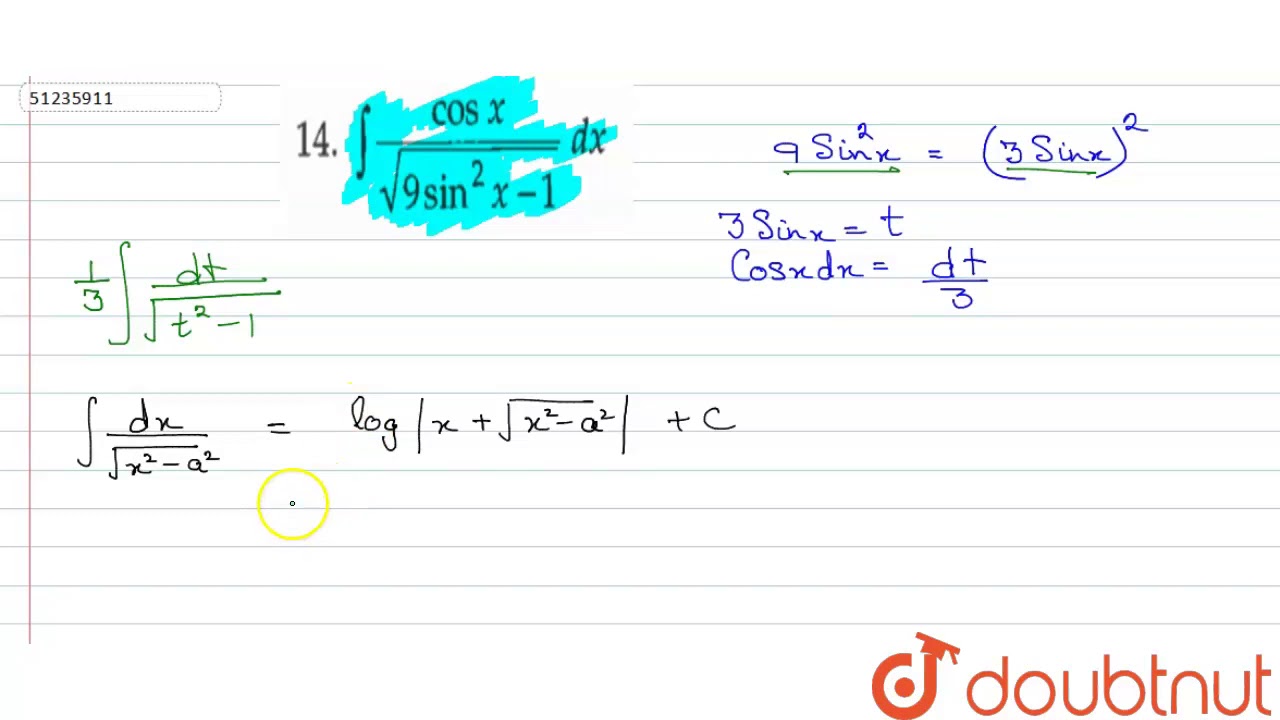 51235911
14. ∫ cos x / √(9 sin² x − 1) dx
9 Sin²x = (3 Sinx)²
3 Sinx = t
Cosxdx = dt/3
1/3 ∫ dt / √(t² − 1)
∫ dx / √(x² − a²) = log |x + √(x² − a²)| + C
doubtnut